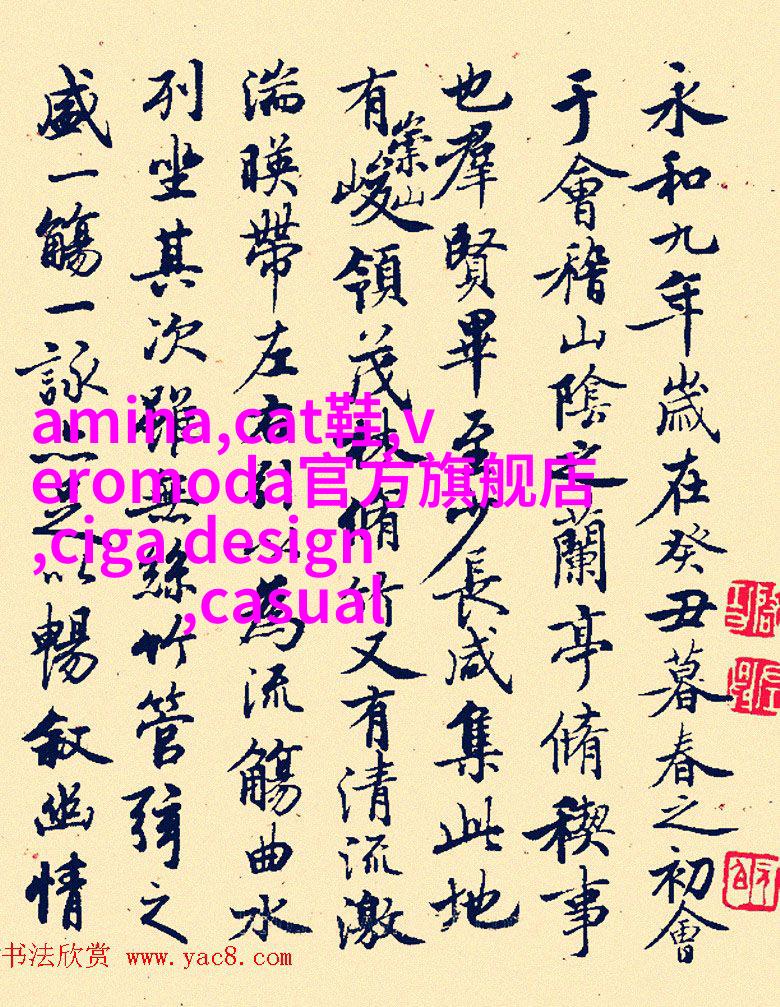 永和九年歲在癸丑暮春之初會
于會稽山陰之蘭亭脩稧事
也羣賢畢至少長咸集此地
有崇山峻領茂林脩竹又有清流激
湍暎帶左右引以為流觴曲水
列坐其次雖無絲竹管弦之
盛一觴一詠亦足以暢敘幽情
amina,cat鞋,v
eromoda官方旗舰店
,ciga design
,casual
书法欣赏 www.yac8.com